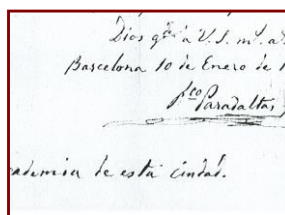 Dios gde. a V. S. ms. a
Barcelona 10 de Enero de 1
fco Paradaltas
ademia de esta ciudad.